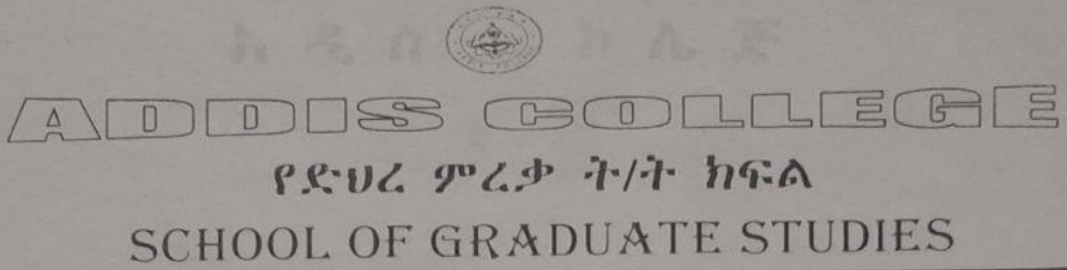 አዲስ ኮሌጅ
ADDIS COLLEGE
የድህረ ምረቃ ት/ት ክፍል
SCHOOL OF GRADUATE STUDIES